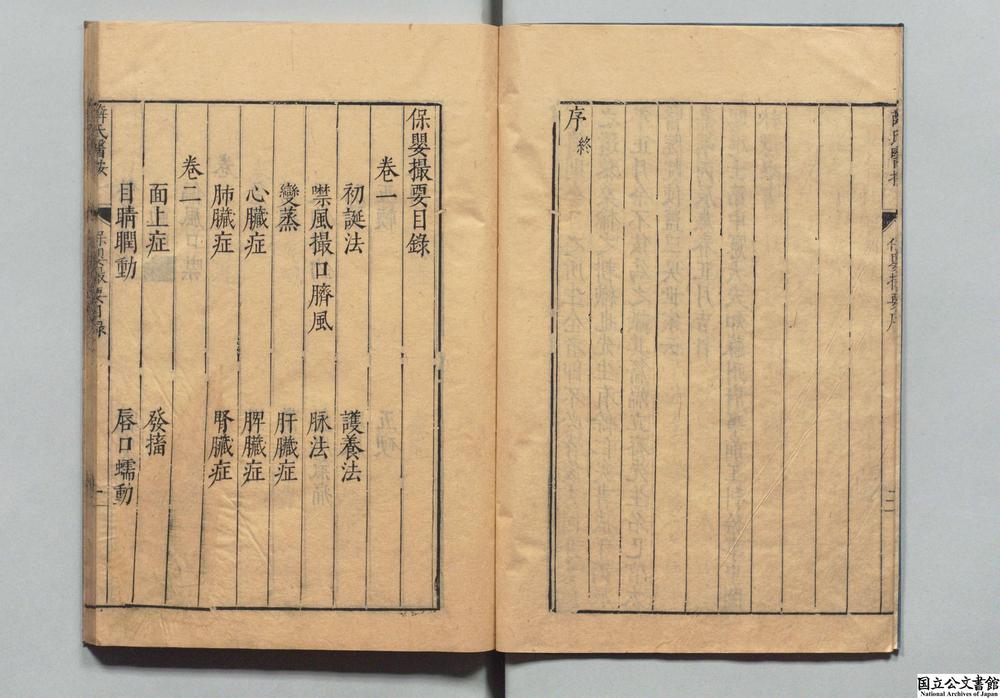 序終
保嬰撮要目錄
卷一
初誕法 護養法
噤風撮口臍風 脉法
變蒸 肝臟症
心臟症 脾臟症
肺臟症 腎臟症
卷二
面上症 發搐
目睛瞤動 唇口蠕動
薛氏醫按 保嬰撮要目錄 一
国立公文書館
National Archives of Japan